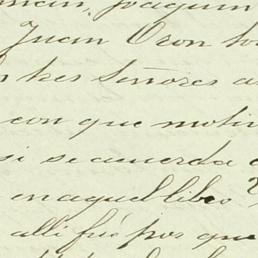 Joaquin
Juan Oron
tres Señores
con que motiv
si se acuerda
en aquel libro
alli fué por que